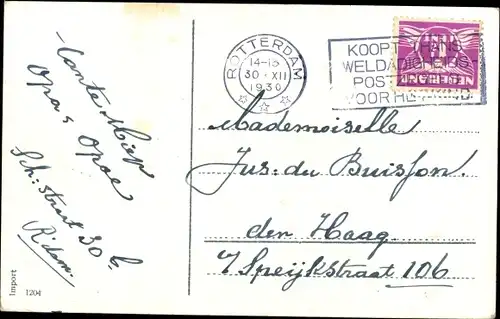 Tante Miep
Opa & Opoe
Sch: straat 30b
R'dam.
Import
1204
ROTTERDAM
14-15
30 · XII
1930
KOOPT THANS
WELDADIGHEIDS
POST
VOOR HET KIND
NEDERLAND
Mademoiselle
Jus: du Buisson.
den Haag
v Speijkstraat 106